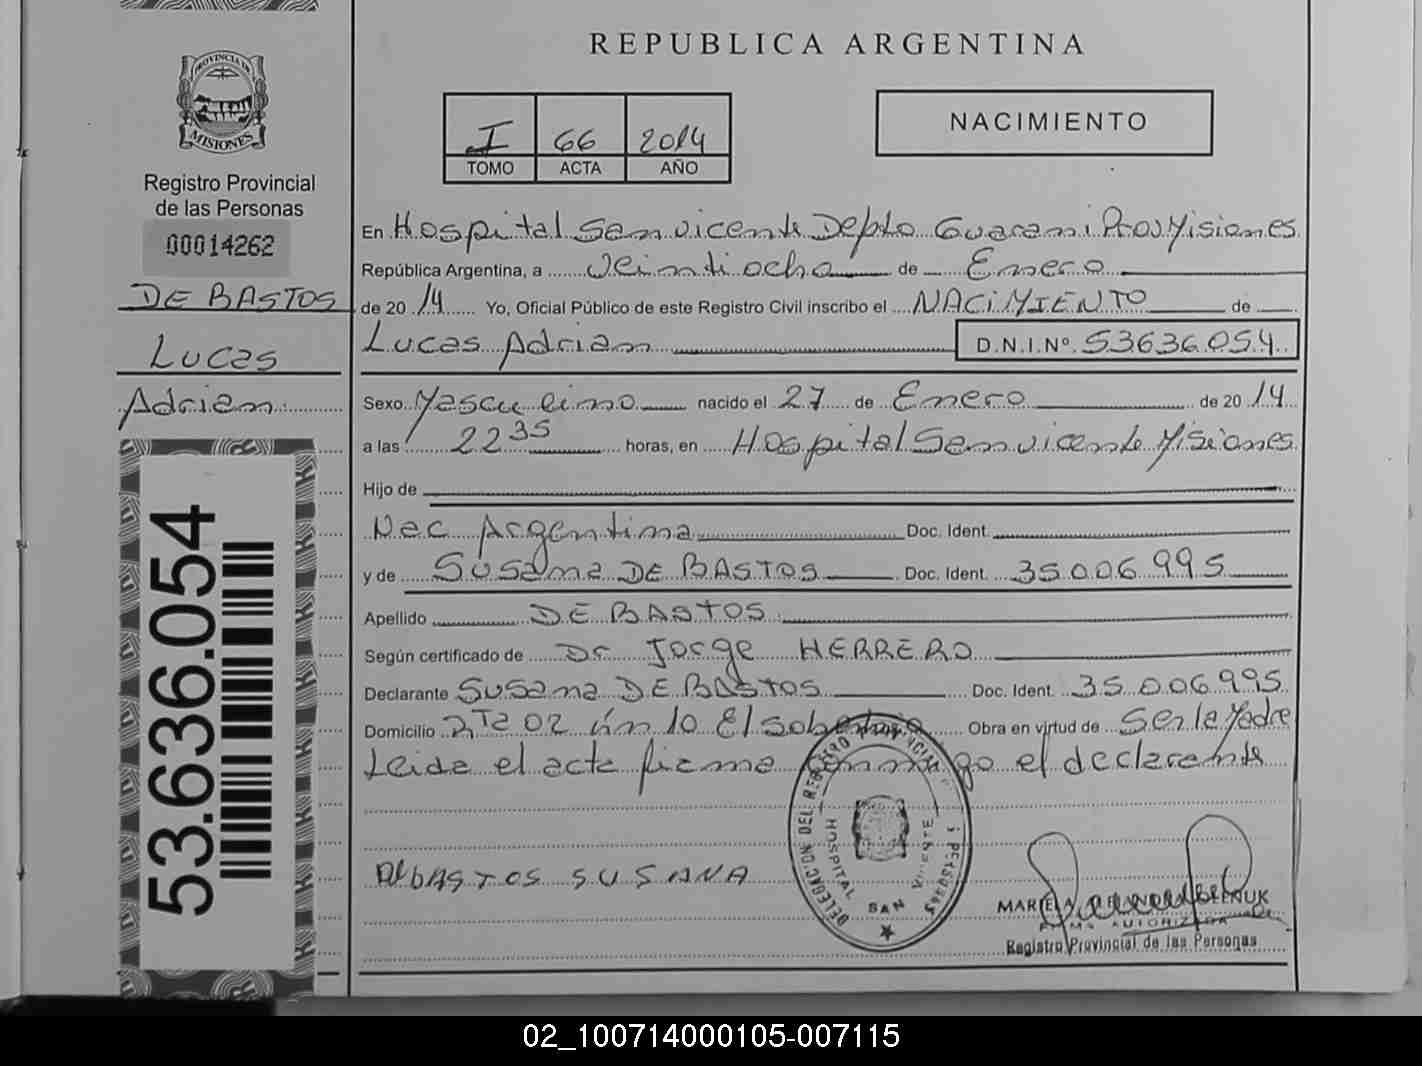 REPUBLICA ARGENTINA
PROVINCIA DE
MISIONES
Registro Provincial
de las Personas
00014262
DE BASTOS
Lucas
Adrian
53.636.054
I 66 2014
TOMO ACTA AÑO
NACIMIENTO
En Hospital San vicente Depto Guarani Prov Misiones
República Argentina, a veintiocho de Enero
de 2014 Yo, Oficial Público de este Registro Civil inscribo el NACiMIENTO de
Lucas Adrian D.N.I.Nº 53636.054
Sexo Masculino nacido el 27 de Enero de 2014
a las 22 35 horas, en Hospital San vicente Misiones
Hijo de
Nac Argentina Doc. Ident.
y de Susana DE BASTOS Doc. Ident. 35.006.995
Apellido DE BASTOS
Según certificado de Dr Jorge HERRERO
Declarante Susana DE BASTOS Doc. Ident. 35.006.995
Domicilio 02 10 El soberbio Obra en virtud de Ser la Madre
Leida el acta firma conmigo el declarante
DELEGACION DEL REGISTRO PROVINCIAL
HOSPITAL SAN VICENTE
DE BASTOS SUSANA
FIRMA AUTORIZADA
Registro Provincial de las Personas
02_100714000105-007115